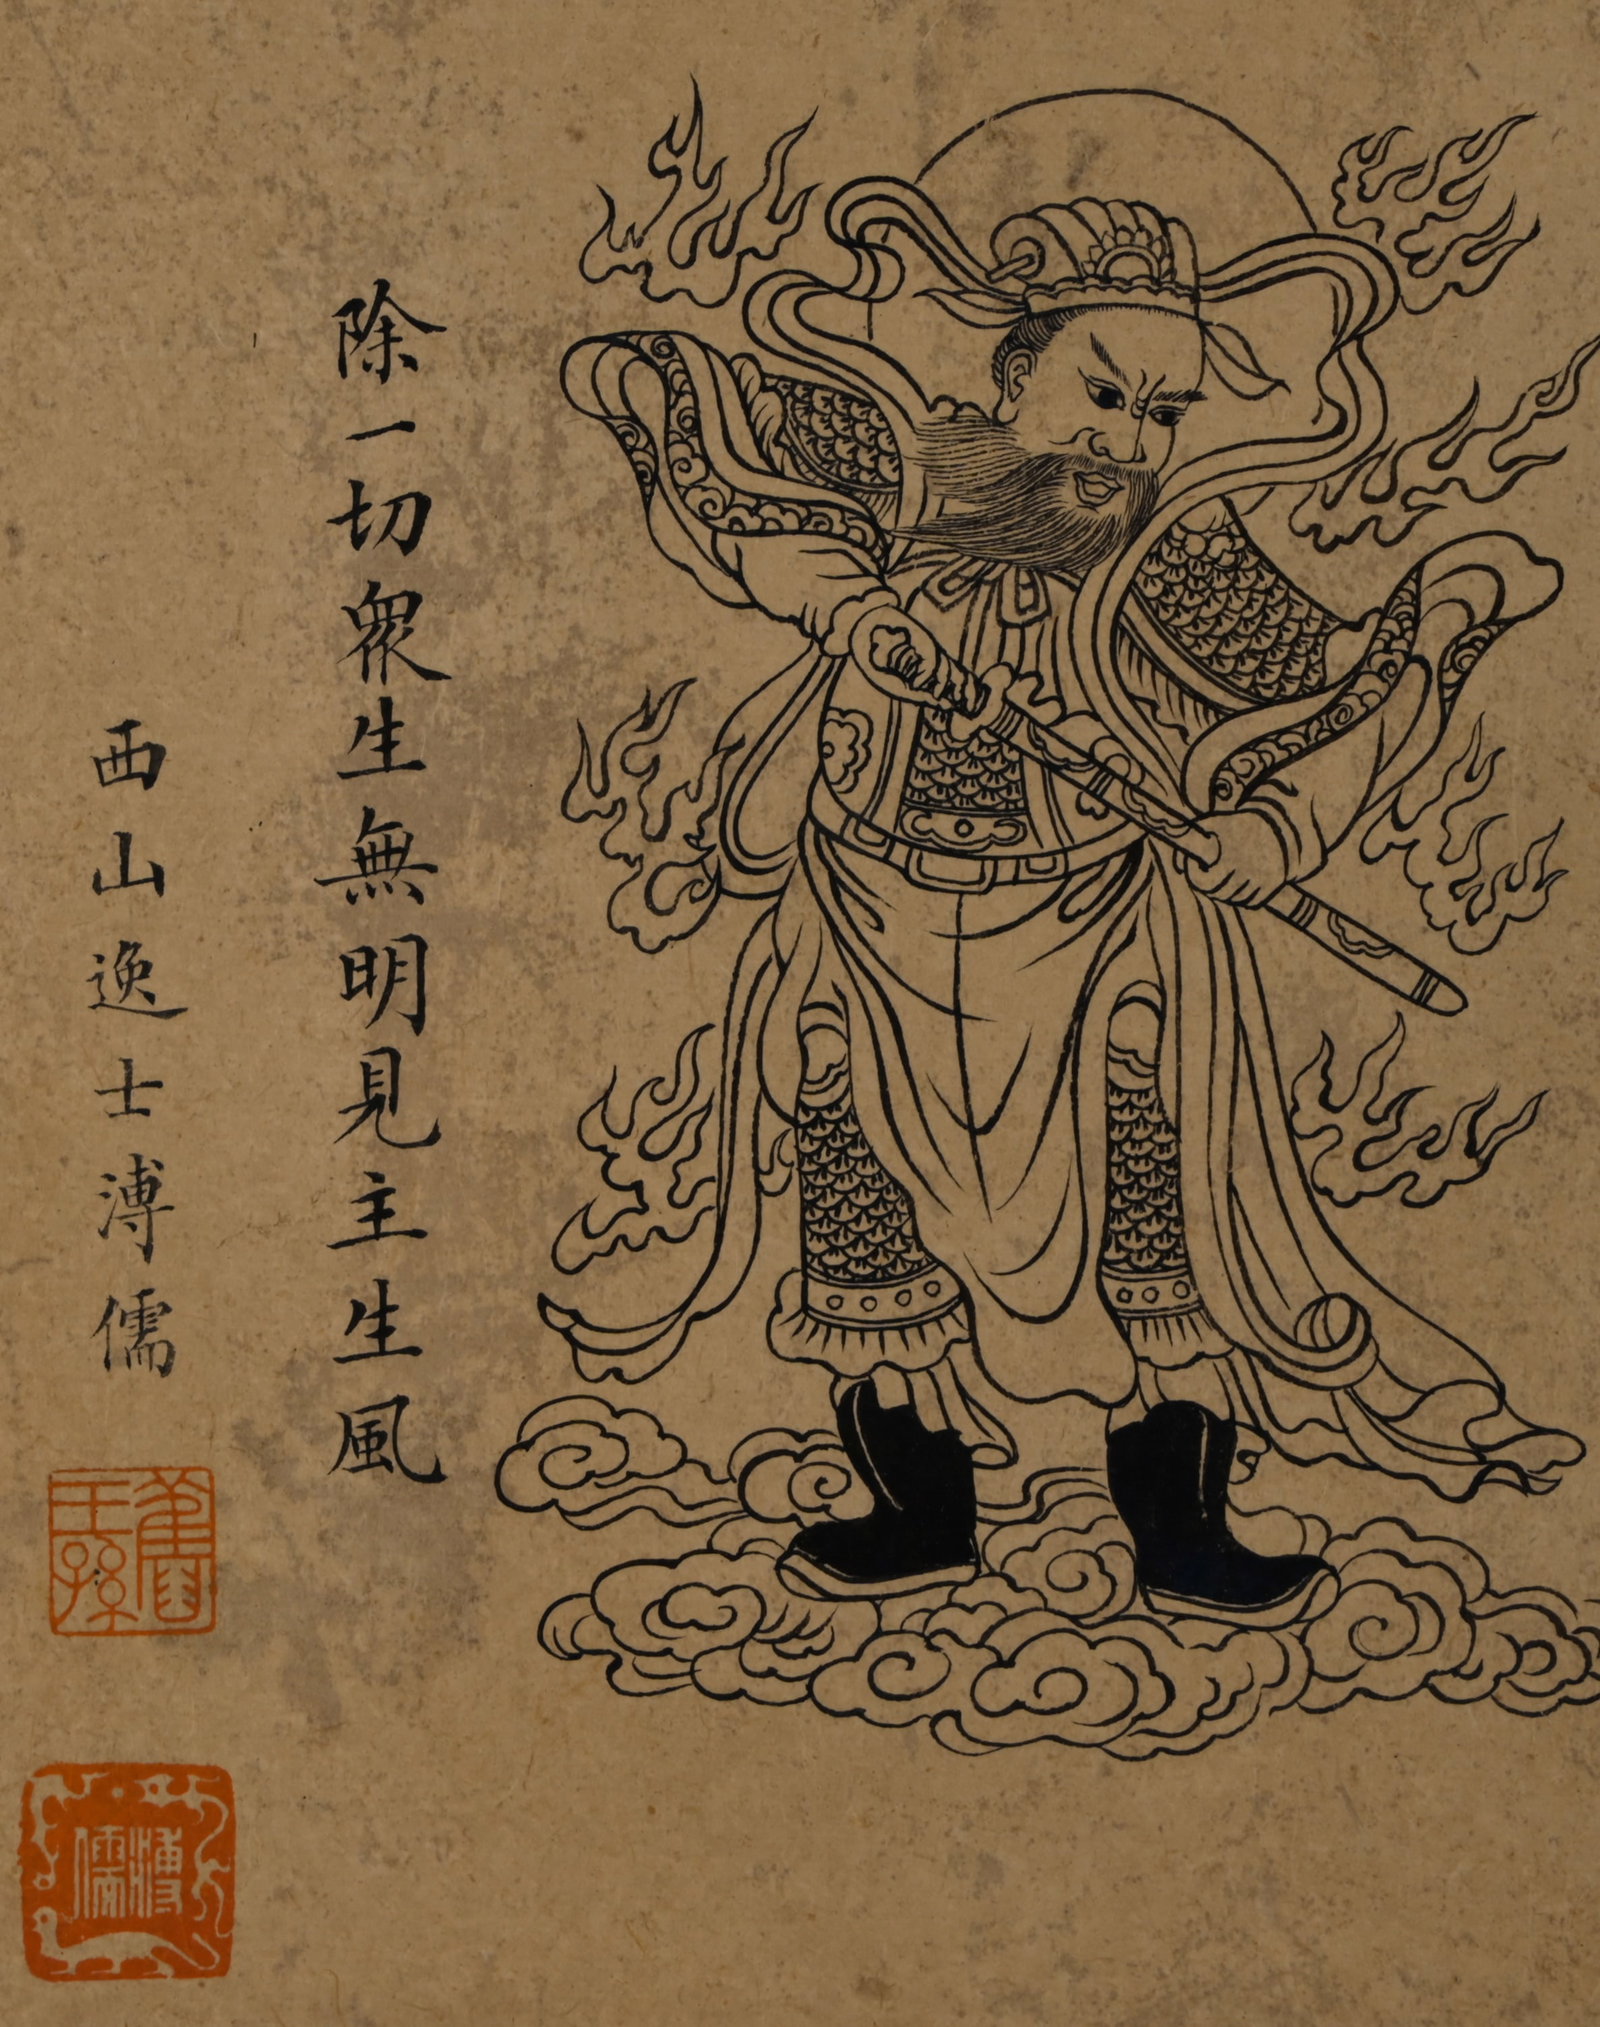 除一切眾生無明見主生風
西山逸士溥儒
舊王孫
溥儒